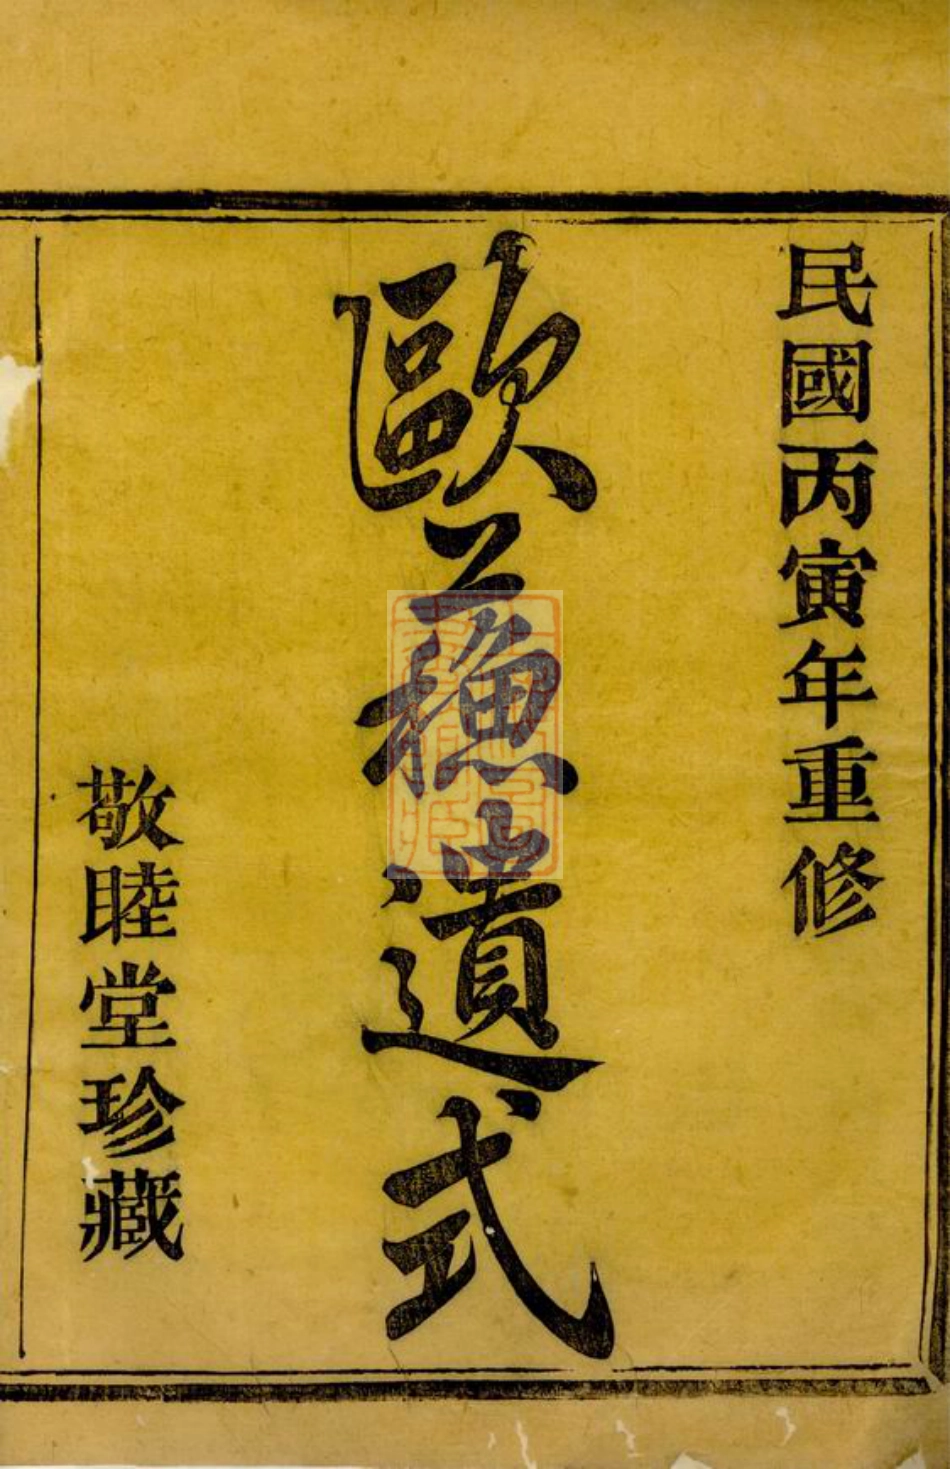 民國丙寅年重修
歐蘓遺式
敬睦堂珍藏